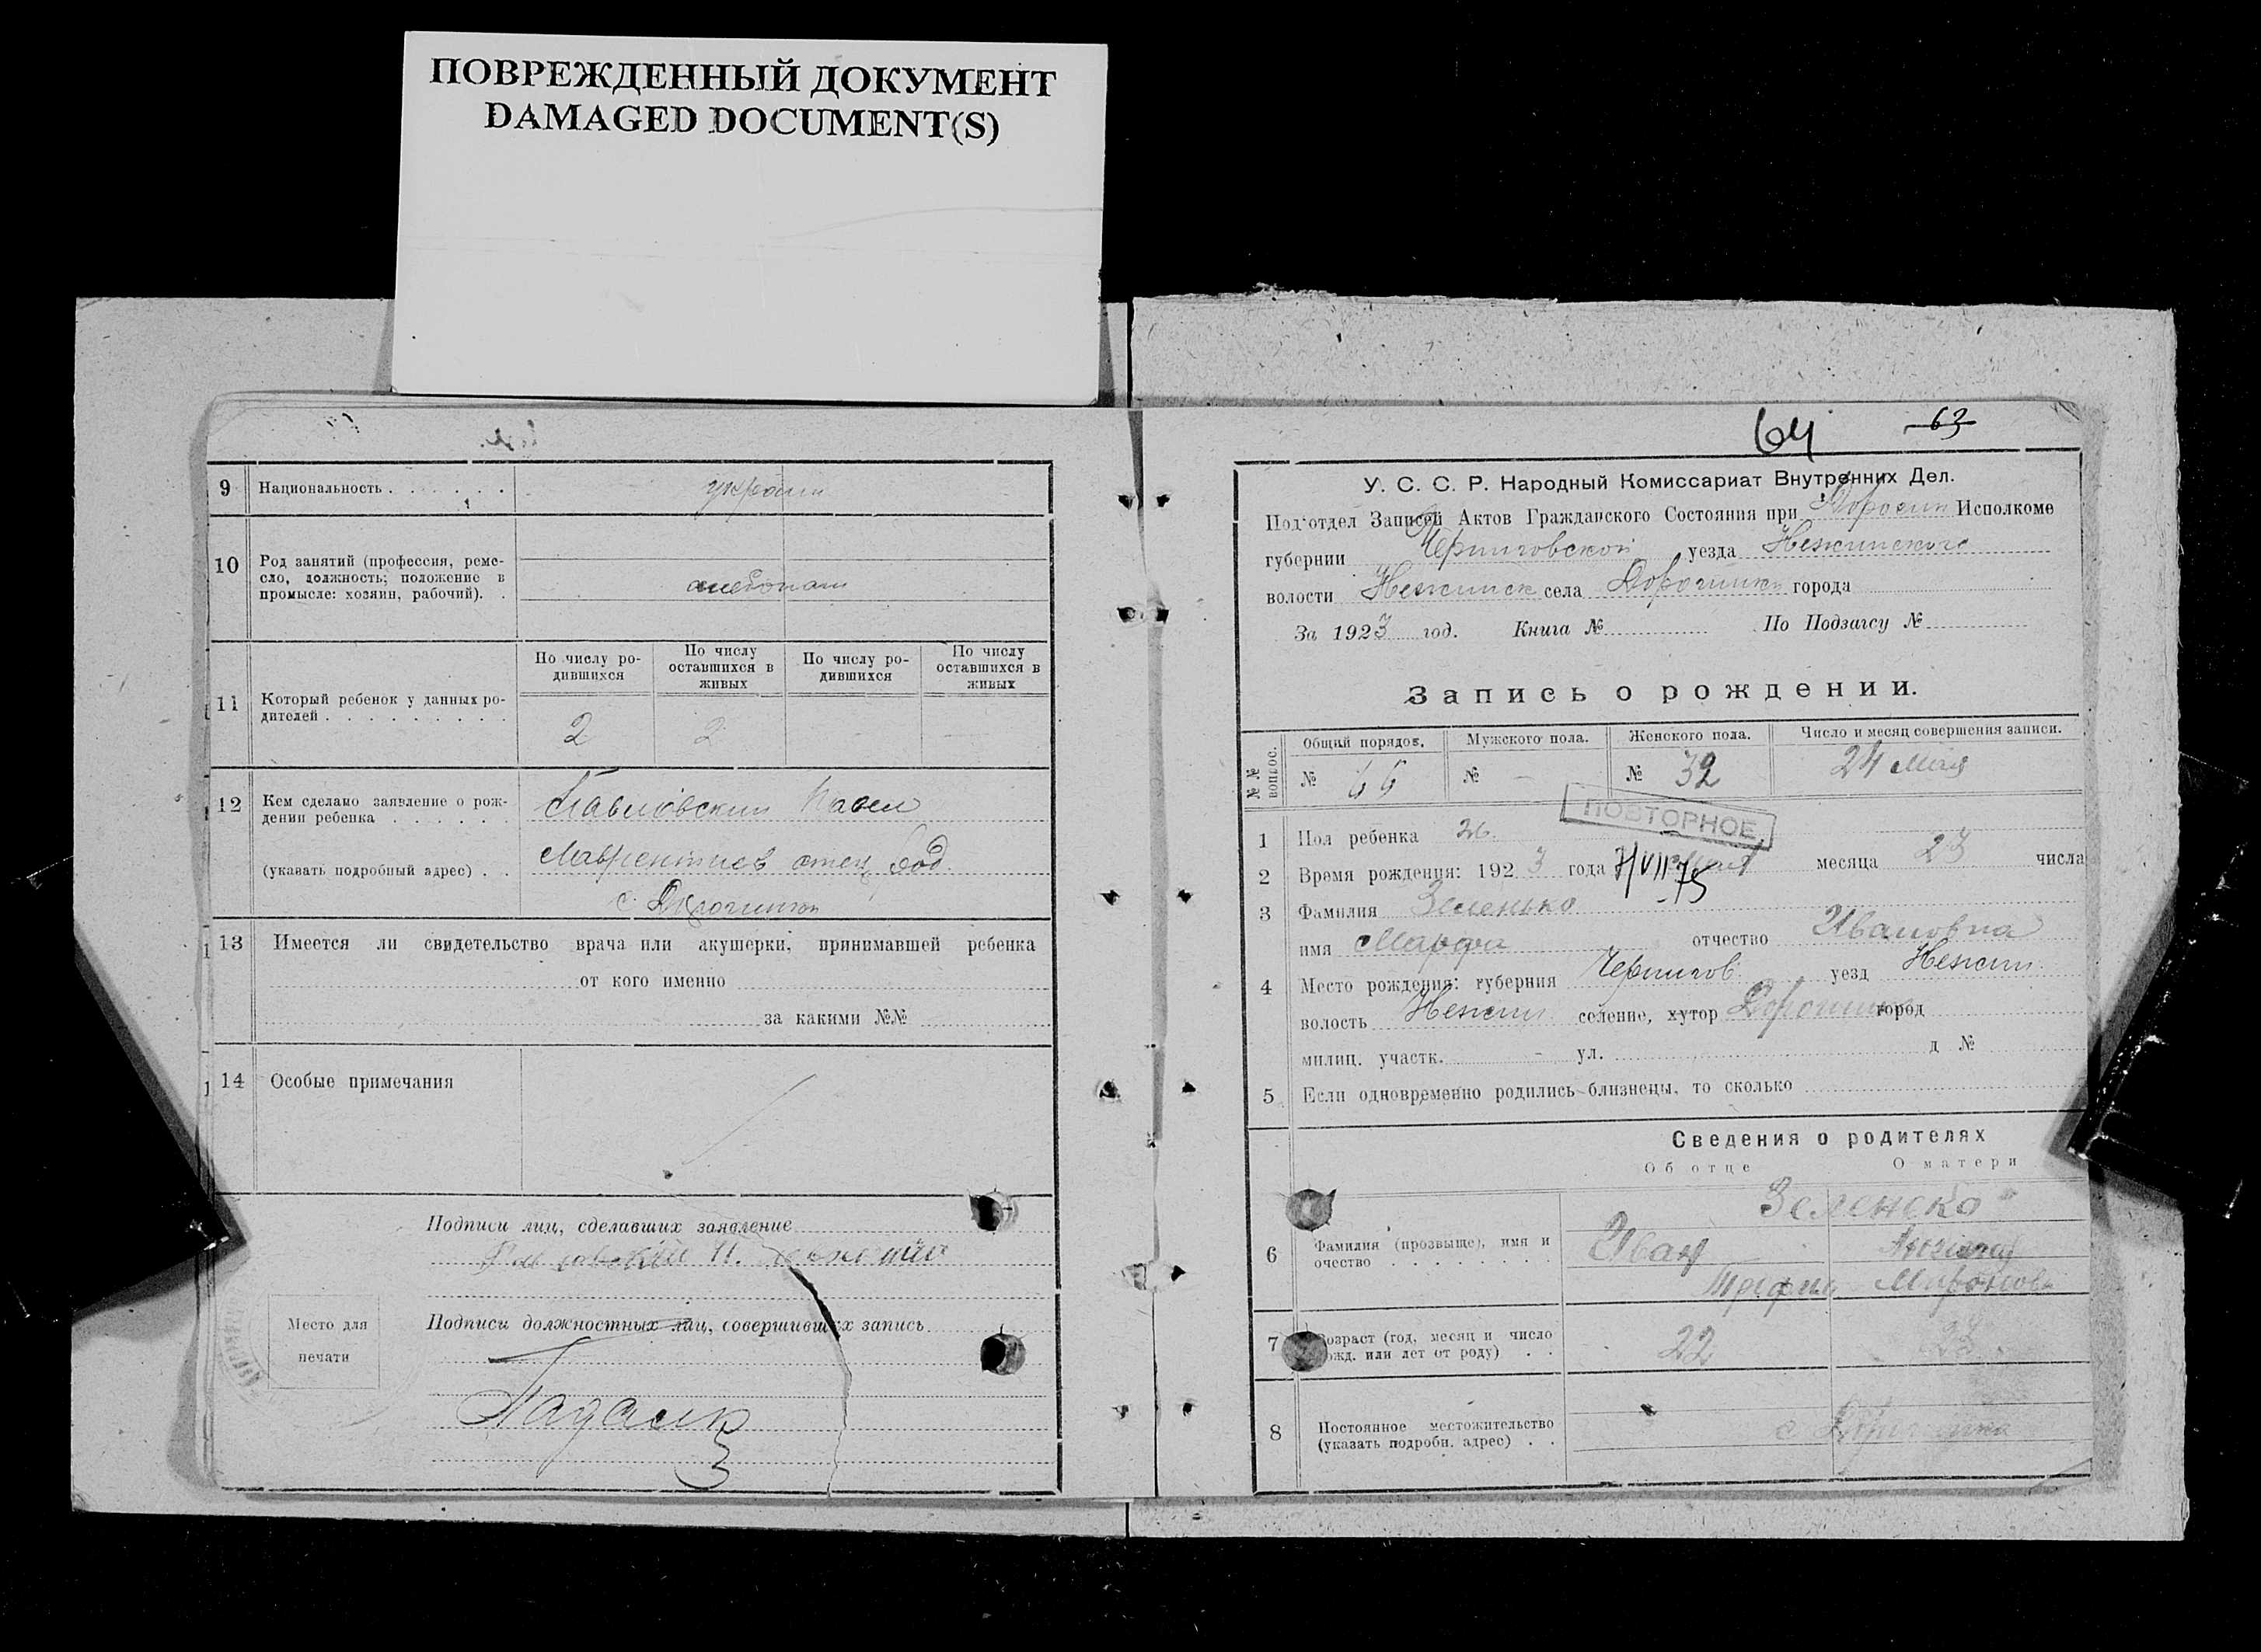 ПОВРЕЖДЕННЫЙ ДОКУМЕНТ
DAMAGED DOCUMENT(S)
9 Национальность . . . . . . украин
10 Род занятий (профессия, реме-
сло, должность; положение в
промысле: хозяин, рабочий). .
По числу ро-
дившихся
По числу
оставшихся в
живых
По числу ро-
дившихся
По числу
оставшихся в
живых
11 Который ребенок у данных ро-
дителей . . . . . . . . .
2 2
12 Кем сделано заявление о рож-
дении ребенка . . . . . .
Павловский Павел
(указать подробный адрес) . .
Лаврентиев отец
с.
13 Имеется ли свидетельство врача или акушерки, принимавшей ребенка
от кого именно
за какими №№
14 Особые примечания
Подписи лиц, сделавших заявление
Место для
печати
Подписи должностных лиц, совершивших запись
64 63
У. С. С. Р. Народный Комиссариат Внутренних Дел.
Под'отдел Записей Актов Гражданского Состояния при Исполкоме
губернии Черниговской уезда Неженского
волости Неженск села города
За 1923 год. Книга № По Подзагсу №
Запись о рождении.
№№ вопрос.
Общий порядов. Мужского пола. Женского пола. Число и месяц совершения записи.
№ 66 № - № 32 24 Мая
ПОВТОРНОЕ
1 Пол ребенка ж.
2 Время рождения: 1923 года 7/VII 75 месяца 23 числа
3 Фамилия Зеленько
имя Марфа отчество Ивановна
4 Место рождения: губерния Чернигов. уезд Нежин.
волость Нежин селение, хутор город
милиц. участк. - ул. д №
5 Если одновременно родились близнецы, то сколько
Сведения о родителях
Об отце О матери
Зеленско
6 Фамилия (прозвыще), имя и
очество . . . . . . . .
Иван
Миронова
7 Возраст (год, месяц и число
рожд. или лет от роду) . .
22
8 Постоянное местожительство
(указать подробн. адрес) . .
с